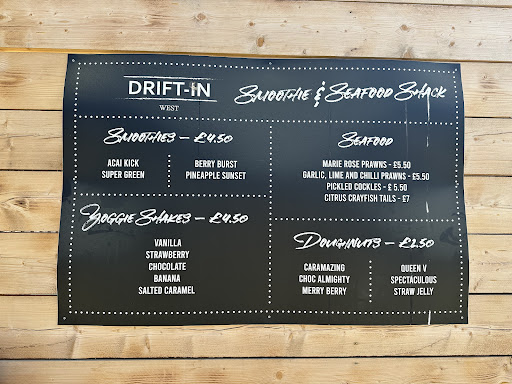 DRIFT-IN
WEST
SMOOTHIE & SEAFOOD SHACK
SMOOTHIES – £4.50
ACAI KICK
SUPER GREEN
BERRY BURST
PINEAPPLE SUNSET
SEAFOOD
MARIE ROSE PRAWNS - £5.50
GARLIC, LIME AND CHILLI PRAWNS - £5.50
PICKLED COCKLES - £ 5.50
CITRUS CRAYFISH TAILS - £7
DOGGIE SHAKES – £4.50
VANILLA
STRAWBERRY
CHOCOLATE
BANANA
SALTED CARAMEL
DOUGHNUTS – £2.50
CARAMAZING
CHOC ALMIGHTY
MERRY BERRY
QUEEN V
SPECTACULOUS
STRAW JELLY